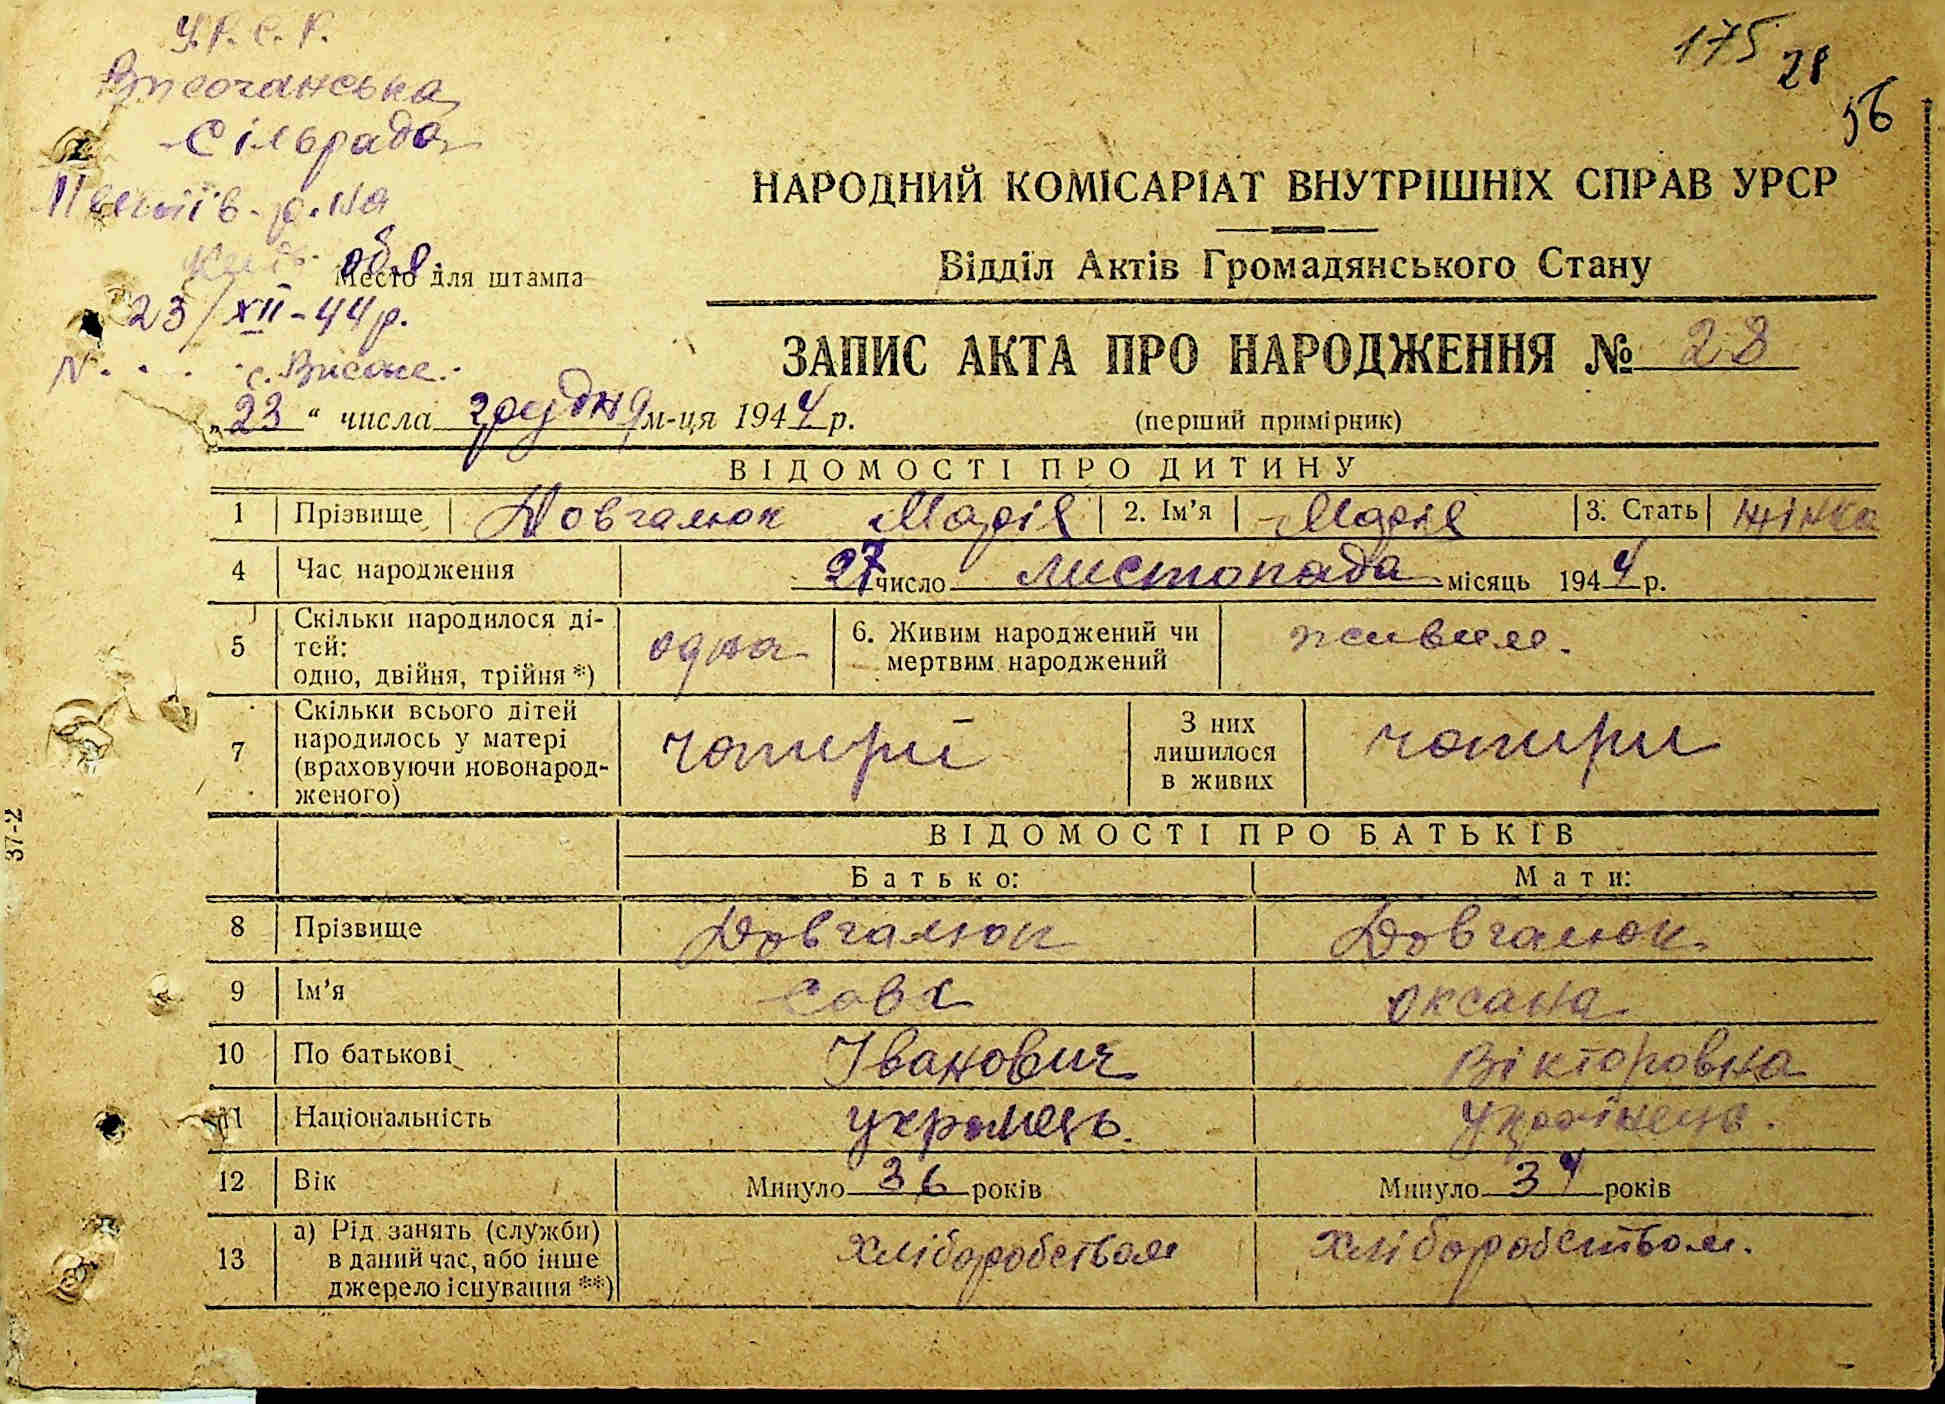 У.Р.С.Р.
175 28
56
Височанська
Сільрада
р.на
обл.
Место для штампа
23/XII-44 р.
N . . . . с. Високе.
НАРОДНИЙ КОМІСАРІАТ ВНУТРІШНІХ СПРАВ УРСР
Відділ Актів Громадянського Стану
ЗАПИС АКТА ПРО НАРОДЖЕННЯ № 28
„23“ числа грудня м-ця 1944 р. (перший примірник)
ВІДОМОСТІ ПРО ДИТИНУ
1 Прізвище Довгалюк Марія 2. Ім’я Марія 3. Стать жінка
4 Час народження 27 число листопада місяць 1944 р.
5 Скільки народилося ді-
тей:
одно, двійня, трійня *) одна 6. Живим народжений чи
мертвим народжений живим.
7 Скільки всього дітей
народилось у матері
(враховуючи новонарод-
женого) чотири З них
лишилося
в живих чотири
ВІДОМОСТІ ПРО БАТЬКІВ
Батько: Мати:
8 Прізвище Довгалюк Довгалюк
9 Ім’я Сава Оксана
10 По батькові Іванович Вікторовна
11 Національність українець. Українець.
12 Вік Минуло 36 років Минуло 34 років
13 а) Рід занять (служби)
в даний час, або інше
джерело існування **) хліборобством хліборобством.
37-2